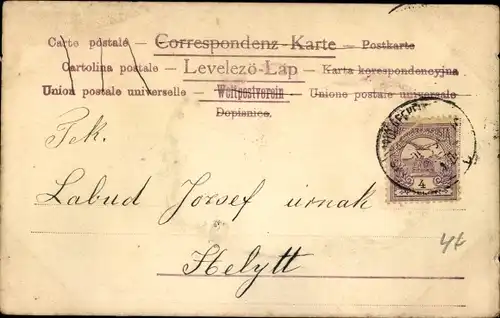 Carte postale — Correspondenz-Karte — Postkarte
Cartolina postale — Levelező-Lap — Karta korespondencyjna
Union postale universelle — Weltpostverein — Unione postale universale
Dopisnice.
Tek.
Labud József urnak
Helytt
4
44